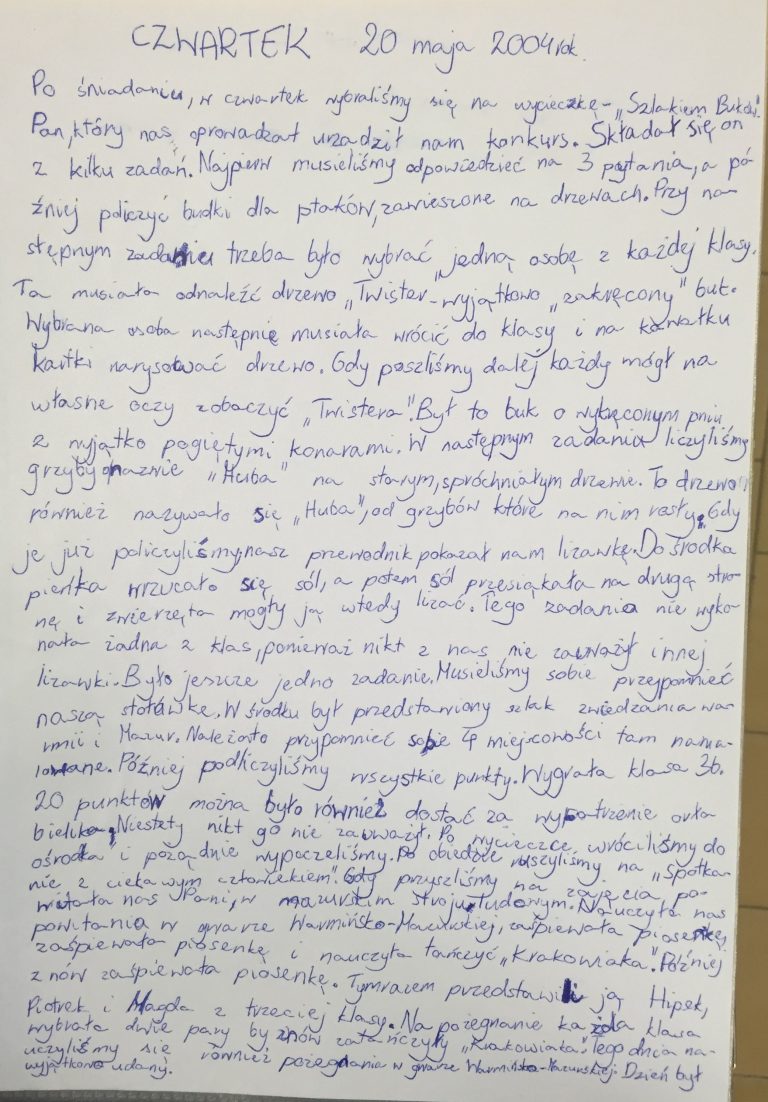 CZWARTEK 20 maja 2004rok.
Po śniadaniu, w czwartek wybraliśmy się na wycieczkę - „Szlakiem Buków".
Pan, który nas oprowadzał urządził nam konkurs. Składał się on
z kilku zadań. Najpierw musieliśmy odpowiedzieć na 3 pytania, a pó-
źniej policzyć budki dla ptaków, zawieszone na drzewach. Przy na-
stępnym zadaniu trzeba było wybrać jedną osobę z każdej klasy.
Ta musiała odnaleźć drzewo „Twister - wyjątkowo „zakręcony" buk.
Wybrana osoba następnie musiała wrócić do klasy i na kawałku
kartki narysować drzewo. Gdy poszliśmy dalej każdy mógł na
własne oczy zobaczyć „Twistera". Był to buk o wykręconym pniu
z wyjątko pogiętymi konarami. W następnym zadaniu liczyliśmy
grzyby o nazwie „Huba" na starym, spróchniałym drzewie. To drzewo
również nazywało się „Huba", od grzybów które na nim rosły. Gdy
je już policzyliśmy, nasz przewodnik pokazał nam lizawkę. Do środka
pieńka wrzucało się sól, a potem sól przesiąkała na drugą stro-
nę i zwierzęta mogły ją wtedy lizać. Tego zadania nie wyko-
nała żadna z klas, ponieważ nikt z nas nie zauważył innej
lizawki. Było jeszcze jedno zadanie. Musieliśmy sobie przypomnieć
naszą stołówkę. W środku był przedstawiony szlak zwiedzania wa-
rmii i Mazur. Należało przypomnieć sobie 4 miejscowości tam nama-
lowane. Później podliczyliśmy wszystkie punkty. Wygrała klasa 3b.
20 punktów można było również dostać za wypatrzenie orła
bielika. Niestety nikt go nie zauważył. Po wycieczce wróciliśmy do
ośrodka i porządnie wypoczeliśmy. Po obiedzie ruszyliśmy na „Spotka-
nie z ciekawym człowiekiem". Gdy przyszliśmy na zajęcia po-
witała nas Pani, w mazurskim stroju ludowym. Nauczyła nas
powitania w gwarze Warmińsko-Mazurskiej, zaśpiewała piosenkę,
zaśpiewała piosenkę i nauczyła tańczyć „Krakowiaka". Później
znów zaśpiewała piosenkę. Tymrazem przedstawili ją Hipek,
Piotrek i Magda z trzeciej klasy. Na pożegnanie każda klasa
wybrała dwie pary by znów zatańczyły „Krakowiaka". Tego dnia na-
uczyliśmy się również pożegnania w gwarze Warmińsko-Mazurskiej. Dzień był
wyjątkowo udany.